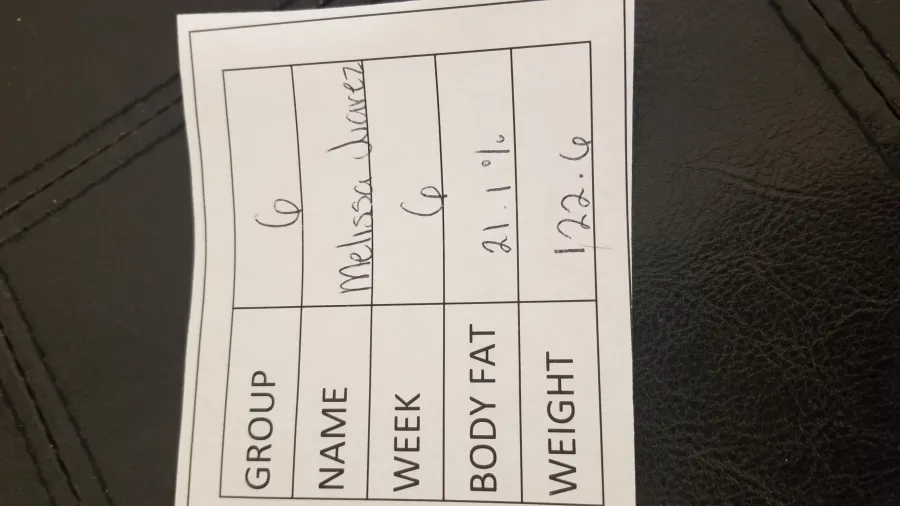 GROUP 6
NAME Melissa Juarez
WEEK 6
BODY FAT 21.1%
WEIGHT 122.6